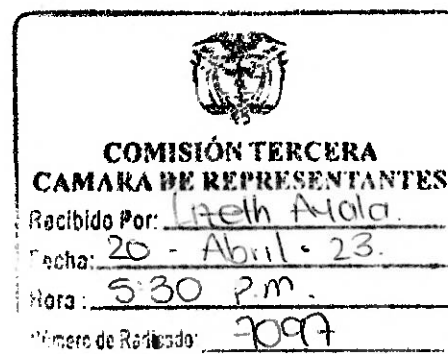 COMISIÓN TERCERA
CAMARA DE REPRESENTANTES
Recibido Por: Lizeth Ayala.
Fecha: 20 - Abril - 23.
Hora: 5:30 P.M.
Número de Radicado: 7097